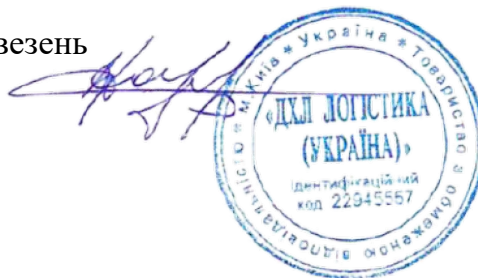 везень
м. Київ * Україна * Товариство з обмеженою відповідальністю *
«ДХЛ ЛОГІСТИКА
(УКРАЇНА)»
Ідентифікаційний
код 22945557